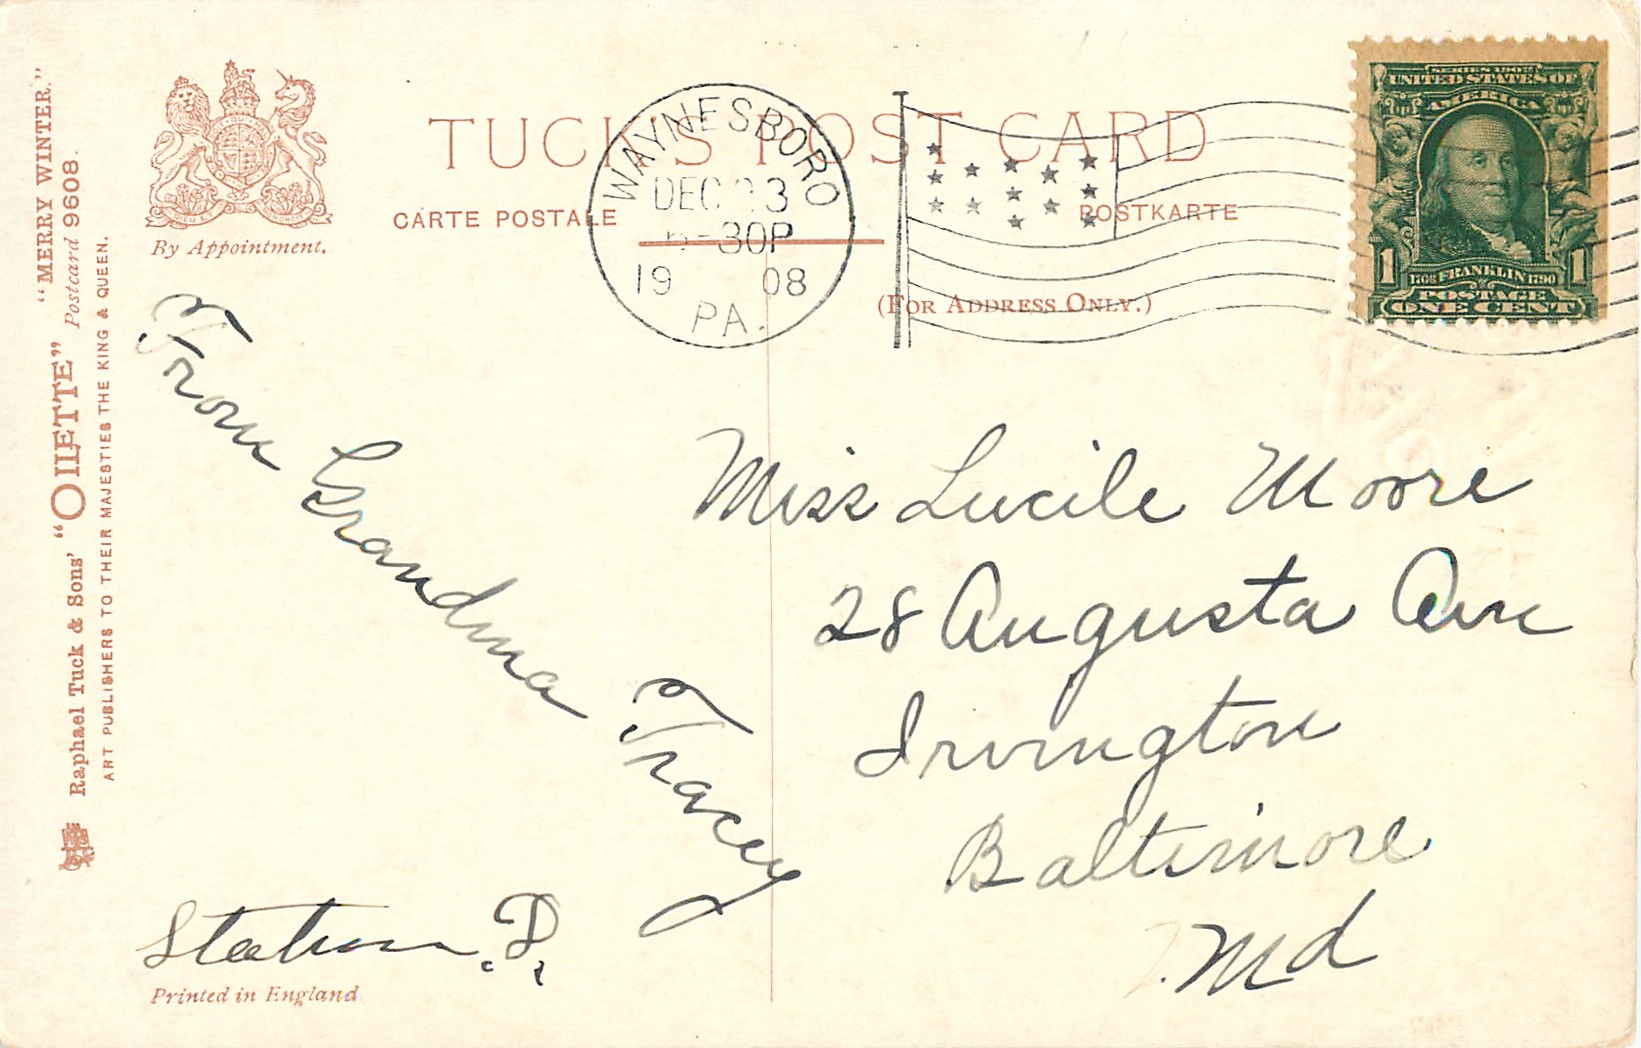 "MERRY WINTER."
Postcard 9608.
Raphael Tuck & Sons' "OILETTE"
ART PUBLISHERS TO THEIR MAJESTIES THE KING & QUEEN.
By Appointment.
TUCK'S POST CARD
CARTE POSTALE
POSTKARTE
(FOR ADDRESS ONLY.)
WAYNESBORO
DEC 23
-30P
19 08
PA.
SERIES 1902
UNITED STATES OF
AMERICA
1 1
1706 FRANKLIN 1790
POSTAGE
ONE CENT
From Grandma Tracey
Miss Lucile Moore
28 Augusta Ave
Irvington
Baltimore
Md
Station D.
Printed in England